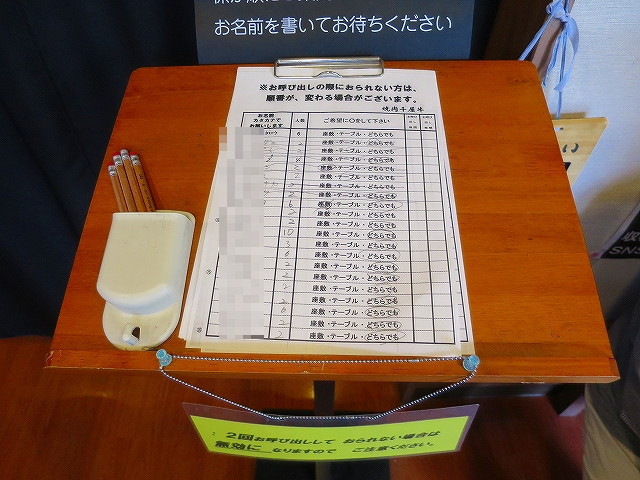 お名前を書いてお待ちください
※お呼び出しの際におられない方は、
順番が、変わる場合がございます。
焼肉千屋牛
お名前
カタカナで
お願いします
人数
ご希望に○をして下さい
6 座敷・テーブル・どちらでも
2 座敷・テーブル・どちらでも
座敷・テーブル・どちらでも
座敷・テーブル・どちらでも
座敷・テーブル・どちらでも
2 座敷・テーブル・どちらでも
座敷・テーブル・どちらでも
2 座敷・テーブル・どちらでも
6 座敷・テーブル・どちらでも
2 座敷・テーブル・どちらでも
2 座敷・テーブル・どちらでも
10 座敷・テーブル・どちらでも
3 座敷・テーブル・どちらでも
6 座敷・テーブル・どちらでも
2 座敷・テーブル・どちらでも
2 座敷・テーブル・どちらでも
2 座敷・テーブル・どちらでも
2 座敷・テーブル・どちらでも
6 座敷・テーブル・どちらでも
2 座敷・テーブル・どちらでも
座敷・テーブル・どちらでも
2回お呼び出しして おられない場合は
無効に なりますので ご注意ください。
SNS